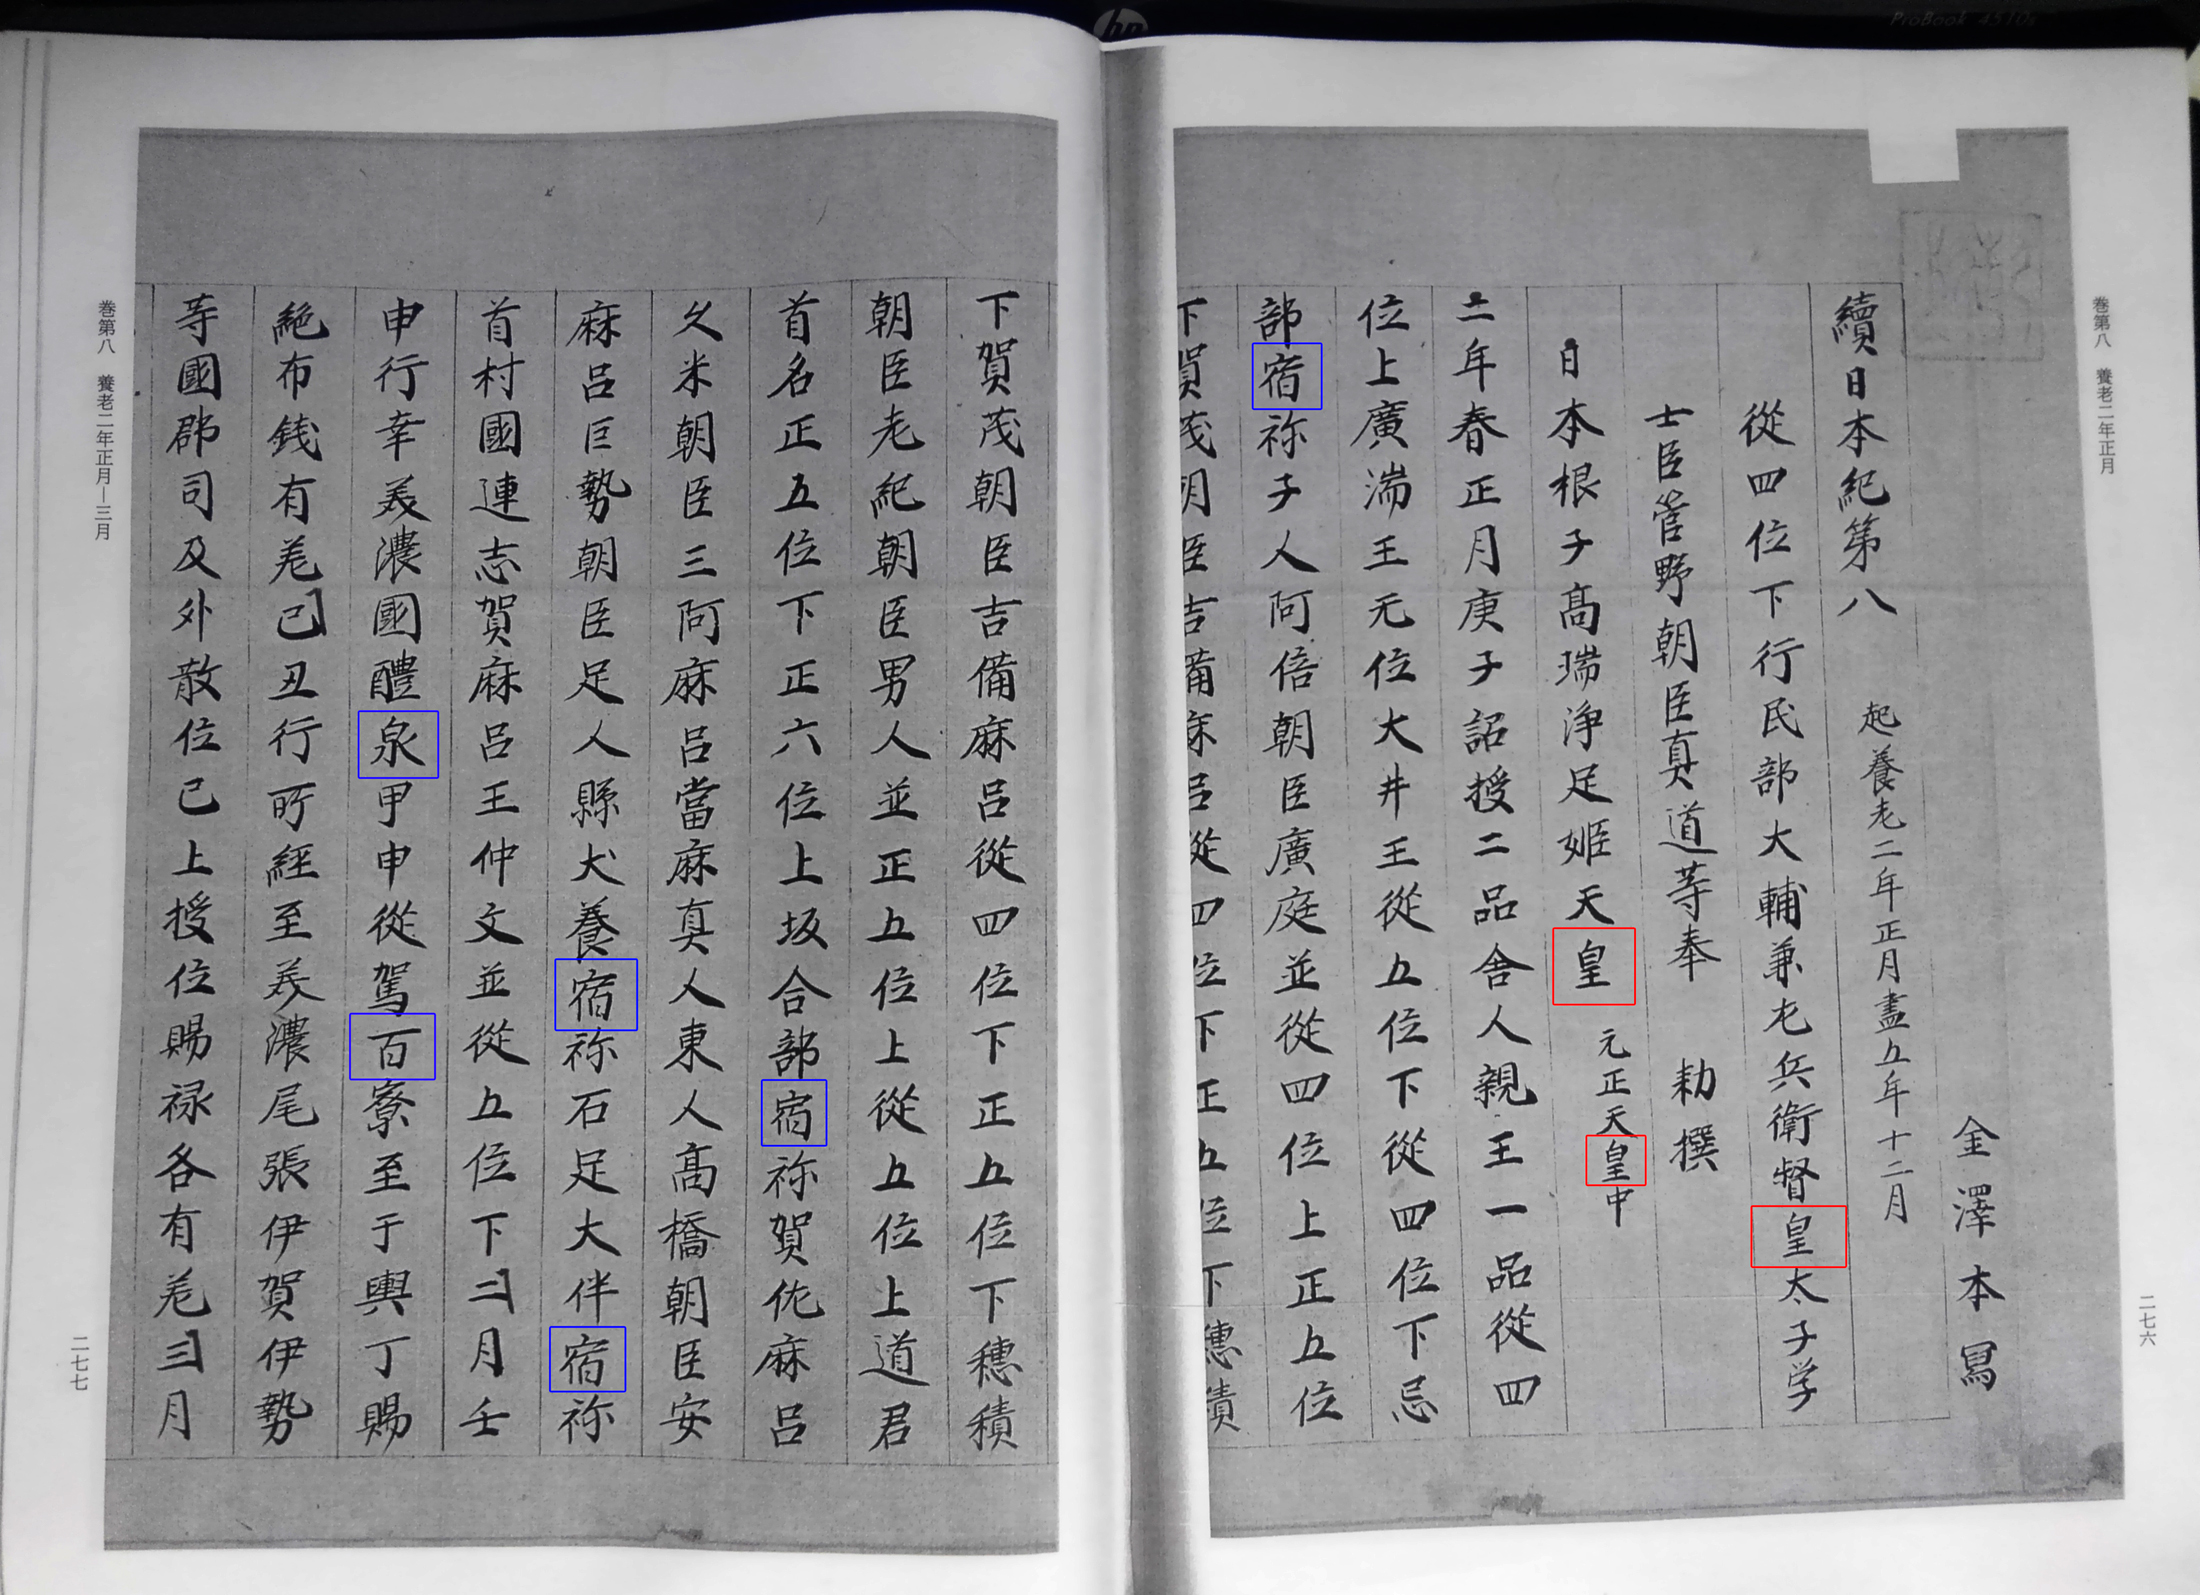 ProBook 4510s
hp
巻第八 養老二年正月
二七六
金澤本冩
續日本紀第八 起養老二年正月盡五年十二月
從四位下行民部大輔兼左兵衛督皇太子学
士臣菅野朝臣真道等奉 勅撰
日本根子髙瑞浄足姬天皇 元正天皇中
二年春正月庚子詔授二品舎人親王一品從四
位上廣湍王无位大井王從五位下從四位下忌
部宿祢子人阿倍朝臣廣庭並從四位上正五位
下賀茂朝臣吉備麻呂從四位下正五位下穗積
下賀茂朝臣吉備麻呂從四位下正五位下穗積
朝臣老紀朝臣男人並正五位上從五位上道君
首名正五位下正六位上坂合部宿祢賀佐麻呂
久米朝臣三阿麻呂當麻真人東人髙橋朝臣安
麻呂巨勢朝臣足人縣犬養宿祢石足大伴宿祢
首村國連志賀麻呂王仲文並從五位下二月壬
申行幸美濃國醴泉甲申從駕百寮至于輿丁賜
絁布銭有差己丑行所經至美濃尾張伊賀伊勢
等國郡司及外散位已上授位賜禄各有差三月
巻第八 養老二年正月—三月
二七七